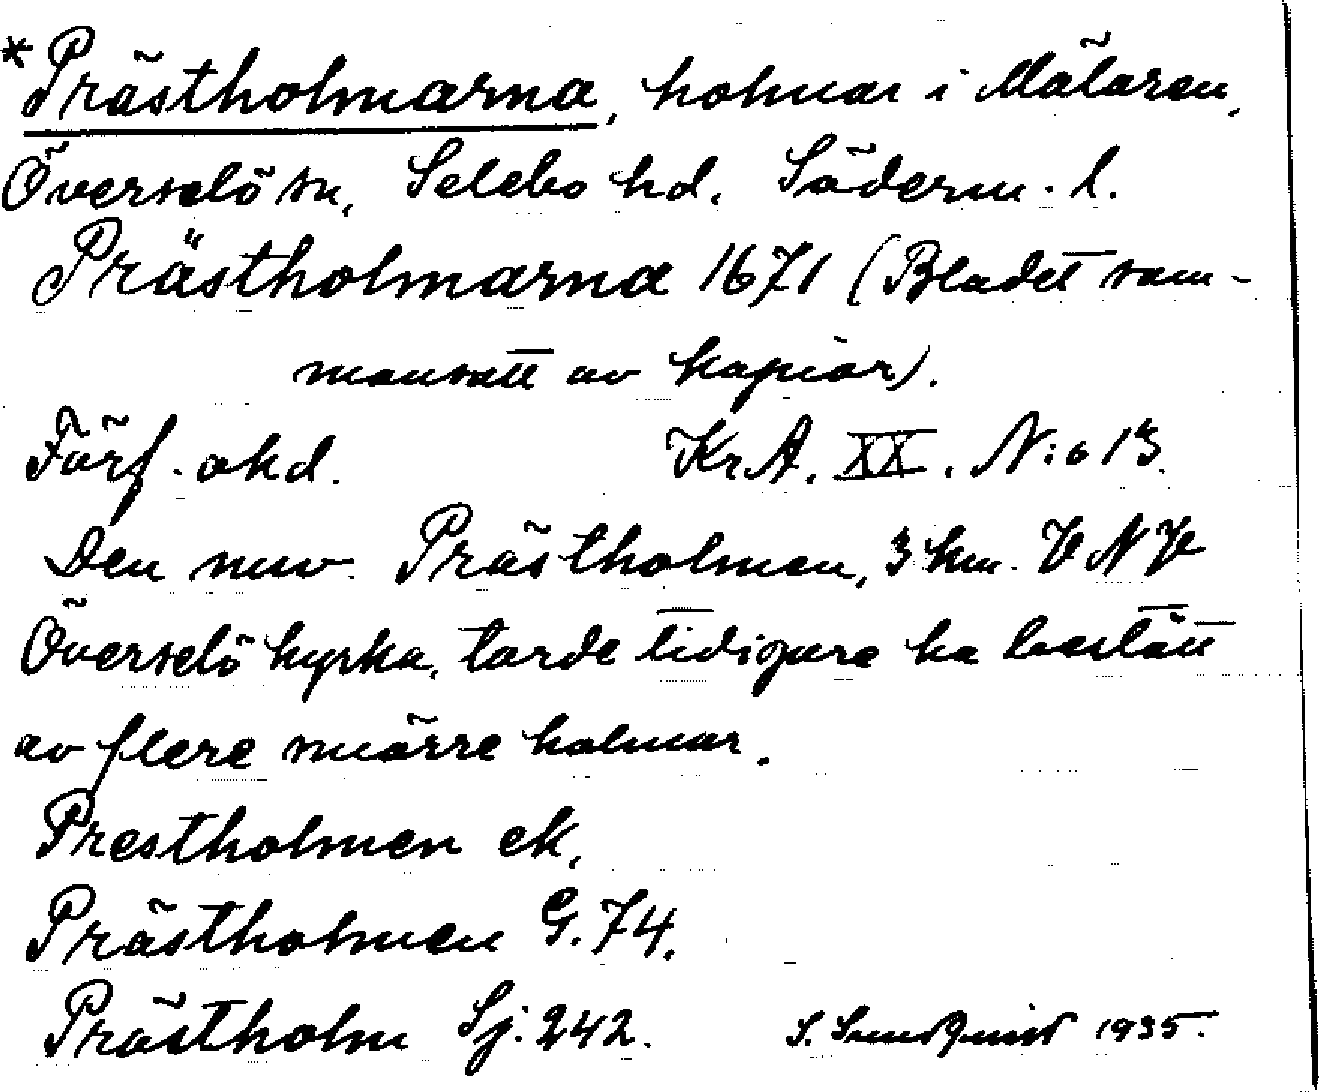 *Prästholmarna, holmar i Mälaren,
Överselö sn, Selebo hd. Söderm. l.
Prästholmarna 1671 (Bladet sam-
mansatt av kopior).
Förf. okd. Kr.A. XX. N:o 13.
Den nuv. Prästholmen, 3 km. VNV
Överselö kyrka, torde tidigare ha bestått
av flere smärre holmar.
Prestholmen ek,
Prästholmen G. 74,
Prästholm Sj. 242. S. Sundquist 1935.